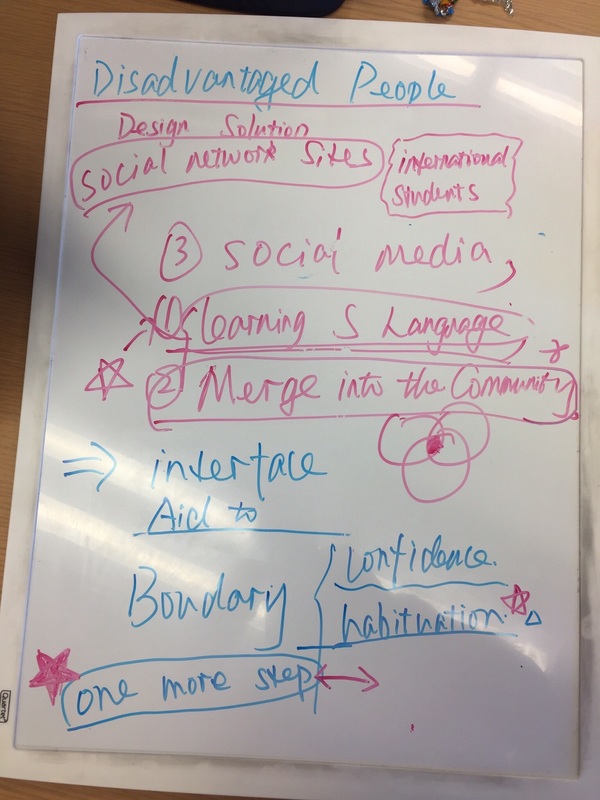 Disadvantaged People
Design Solution
social network Sites
international
Students
③ social media,
① learning S Language
② Merge into the Community
⇒ interface
Aid to
Boudary
Confidence.
habituation
one more step
Quartet